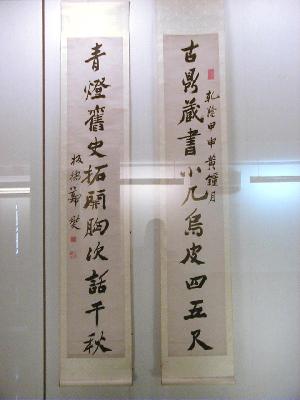 古鼎藏書小几烏皮四五尺
乾隆甲申黄鐘月
青燈舊史拓開胸次話千秋
板橋鄭燮